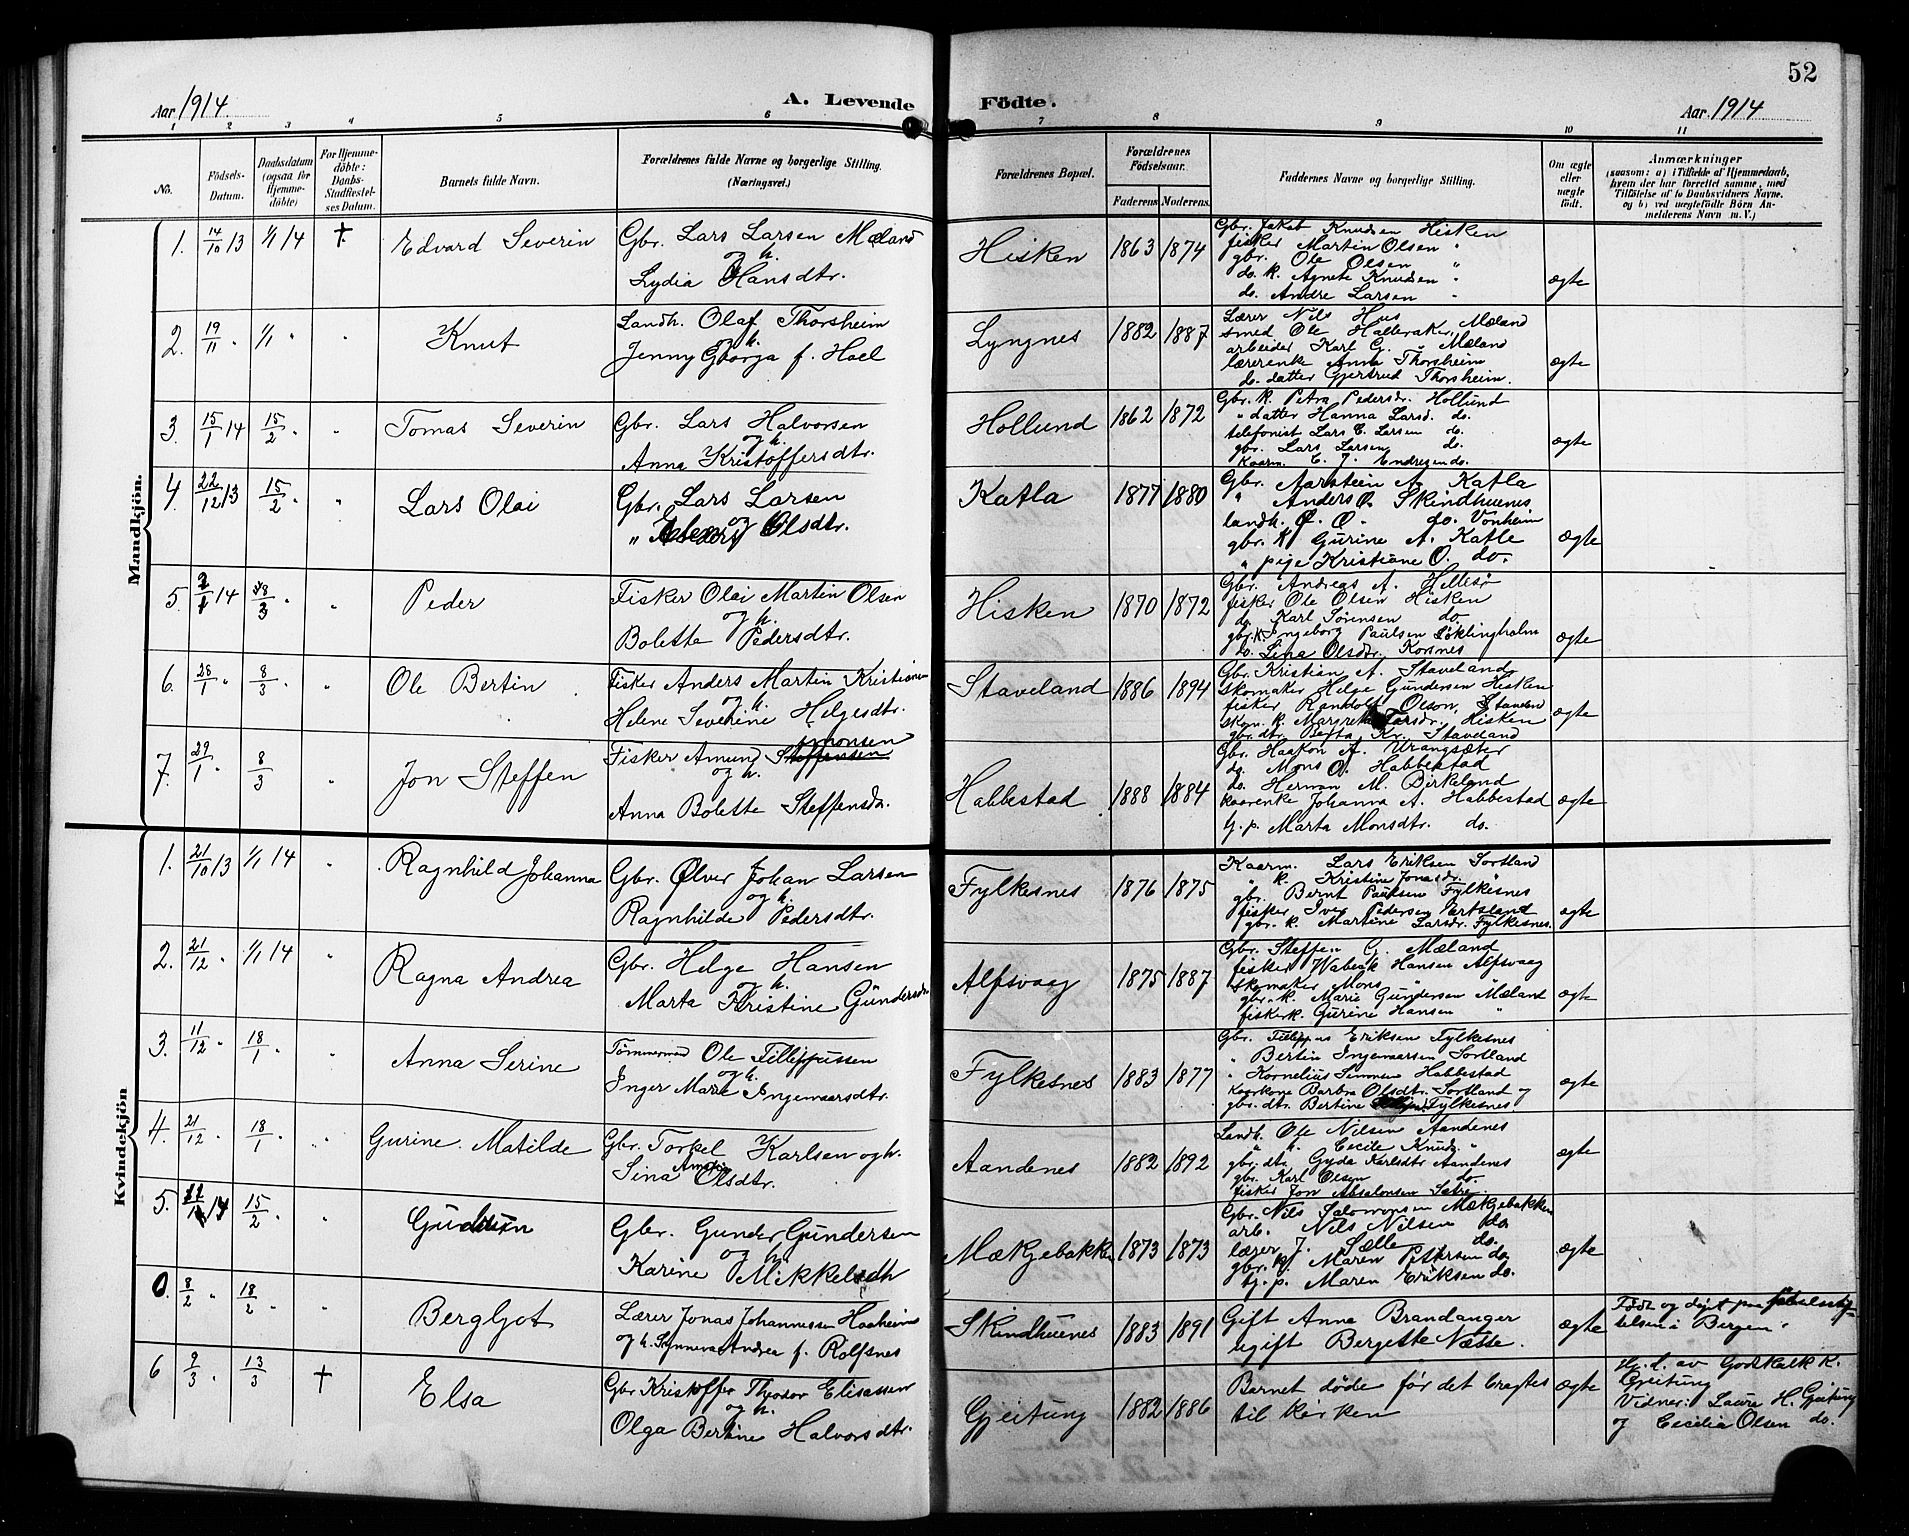 52
Aar 1914. A. Levende Födte. Aar 1914
1 2 3 4 5 6 7 8 9 10 11
No.
Födsels-
Datum.
Daabsdatum
(ogsaa for
Hjemme-
döbte)
For Hjemme-
döbte:
Daabs-
Stadfæstel-
ses Datum.
Barnets fulde Navn.
Forældrenes fulde Navne og borgerlige Stilling.
(Næringsvei.)
Forældrenes Bopæl.
Forældrenes
Födselsaar.
Faderens. Moderens.
Faddernes Navne og borgerlige Stilling.
Om ægte
eller
uægte
födt.
Anmærkninger
(saasom: a) i Tilfælde af Hjemmedaab,
hvem der har forrettet samme, med
Tilföielse af to Daabsvidners Navne.
og b) ved uægtefödte Börn An-
melderens Navn m. V.)
Mandkjön.
1. 14/10 13 1/1 14 † Edvard Severin
Gbr. Lars Larsen Mæland
og h.
Lydia Hansdtr.
Hisken 1863 1874
Gbr. Jakob Knudsen Hisken
fisker Martin Olsen "
gbr. Ole Olsen "
do. k. Agnete Knudsen "
do. Andre Larsen "
ægte
2. 19/11 " 1/1 " " Knut
Landh. Olaf Thorsheim
og h.
Jenny Georga f. Hoel
Lyngnes 1882 1887
Lærer Nils Hus
smed Ole Halleraker, Mæland
arbeider Karl G. " Mæland
lærerenke Anna Thorsheim
do. datter Gjertrud Thorsheim.
ægte
3. 15/1 14 15/2 " " Tomas Severin
Gbr. Lars Halvorsen
og h.
Anna Kristoffersdtr.
Hollund 1862 1872
Gbr. k. Petra Pedersdr. Hollund
" datter Hanna Larsd. do.
telefonist Lars C. Larsen do.
gbr. Lars Larsen do.
Kaarm. E. J. Endresen do.
ægte
4. 22/12 13 15/2 " " Lars Olai
Gbr. Lars Larsen
og
" Olsdtr.
Katla 1877 1880
Gbr. Aarstein A. Katla
" Anders O. Skindhuenes
landh. O. O. Vonheim
gbr. k. Gurine A. Katle
" pige Kristiane O. do.
ægte
5. 14 8/3 " " Peder
Fisker Olai Martin Olsen
og h.
Bolette Pedersdtr.
Hisken 1870 1872
Gbr. Andreas A. Hellisö
fisker Ole Olsen Hisken
do. Karl Sörensen do.
gbr. k. Ingeborg Paulsen Söklingholm
do. Sina Olsdtr. Korsnes
ægte
6. 28/1 " 8/3 " " Ole Bertin
Fisker Anders Martin Kristiansen
og h.
Helene Severine Helgesdtr.
Staveland 1886 1894
Gbr. Kristian A. Staveland
Skomaker Helge Gundersen Hisken
fisker Randolf Olson, Standen
skom. k. Margrete Larsdr. Hisken
gbr. dtr. Berta Kr. Staveland
ægte
7. 29/1 " 8/3 " Jon Steffen
Fisker Amund Simonsen
og h.
Anna Bolette Steffensdr.
Habbestad 1888 1884
Gbr. Haakon A. Urangsæter
do. Mons O. Habbestad
do. Herman M. Birkeland
kaarenke Johanna A. Habbestad
tj. p. Marta Monsdtr. do.
ægte
Kvindekjön
1. 21/10 13 1/1 14 " Ragnhild Johanna
Gbr. Ölver Johan Larsen
og h.
Ragnhilde Pedersdtr.
Fylkesnes 1876 1875
Kaarm. Lars Eriksen Sortland
" k. Kristine Jonasdr. "
gbr. Bernt Paulsen Fylkesnes
fisker Iver Pedersen Vortsland
gbr. k. Martine Larsdr. Fylkesnes.
ægte
2. 21/12 " 1/1 14 " Ragna Andrea
Gbr. Helge Hansen
og h.
Marta Kristine Gundersdr.
Alfsvaag 1875 1887
Gbr. Steffen G. Mæland
fisker Hansen Alfsvaag
Skomaker Mons "
gbr. k. Marie Gundersen Mæland
fiskerk. Gurine Hansen "
ægte
3. 11/12 " 18/1 " " Anna Serine
Tömmermand Ole Fillippussen
og h.
Inger Marie Ingemarsdtr.
Fylkesnes 1883 1877
Gbr. Fillippus Eriksen Fylkesnes
" Bertin Ingemarsen Sortland
" Kornelius Simonsen Habbestad
kaarkone Barbra Olsdtr. Sortland og
gbr. dtr. Bertine Fylkesnes
ægte
4. 21/12 " 18/1 " " Gurine Matilde
Gbr. Torkel Karlsen og h.
Sina Amalia Olsdtr.
Aandenes 1882 1892
Landh. Ole Nilsen Aandenes
" h. Cecile Knuds. "
gbr. dtr. Gyda Karlsdtr Aandenes
gbr. Karl Olsen do.
fisker Jon Absalonsen Sætre
ægte
5. 14 15/2 " " Gudrun
Gbr. Gunder Gundersen
og h.
Karine Mikkelsdtr
Mækjebakken 1873 1873
Gbr. Nils Salomonsen Mækjebakken
arb. Nils Nilsen do.
lærer J. Sælle do.
gbr. k. Maren Petersen do.
tj. p. Maren Eriksen do.
ægte
0. 8/2 " 18/2 " " Bergljot
Lærer Jonas Johannessen Haaheim
og h. Synneva Andrea f. Rolfsnes
Skindhuenes 1883 1891
Gift Anna Brandanger
ugift Bergette Nætte.
ægte
Födt og döpt paa födselsstif-
telsen i Bergen.
6 9/3 " 13/3 † Elsa
Gbr Kristoffer Theodor Eliassen
og h.
Olga Bertine Halvorsdtr.
Gjeitung 1882 1886
Barnet döde för det bragtes
til kirken
ægte
Hj. d. av Godskalk K.
Gjeitung
Vidner: Laura H. Gjeitung
og Cecilia Olsen do.